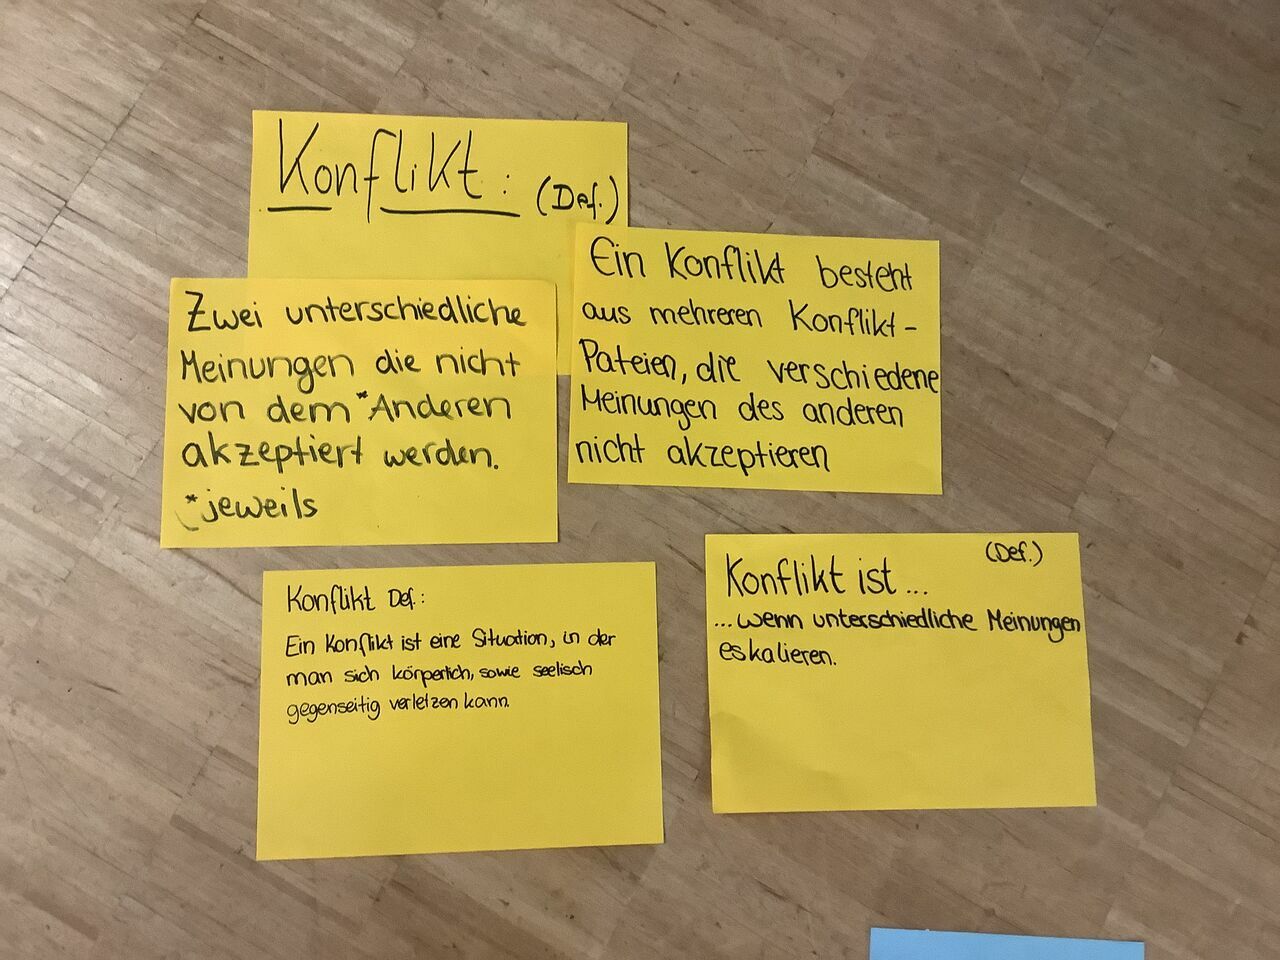 Konflikt: (Def.)
Zwei unterschiedliche
Meinungen die nicht
von dem *Anderen
akzeptiert werden.
*jeweils
Ein Konflikt besteht
aus mehreren Konflikt-
Pateien, die verschiedene
Meinungen des anderen
nicht akzeptieren
Konflikt Def.:
Ein Konflikt ist eine Situation, in der
man sich körperlich, sowie seelisch
gegenseitig verletzen kann.
(Def.)
Konflikt ist...
...wenn unterschiedliche Meinungen
eskalieren.